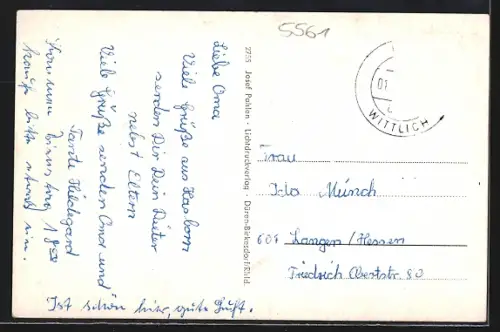 5561
Liebe Oma
Viele Grüße aus Hasborn
senden Dir Dein Dieter
nebst Eltern
Viele Grüße senden Oma und
Tante Hildegard
Komme Dienstag
kaufe bitte etwas ein.
Ist schön hier, gute Luft.
2755 Josef Pahlen · Lichtdruckverlag · Düren-Birkesdorf/Rhld.
01
WITTLICH
Frau
Ida Münch
607 Langen/Hessen
Friedrich Ebertstr. 80